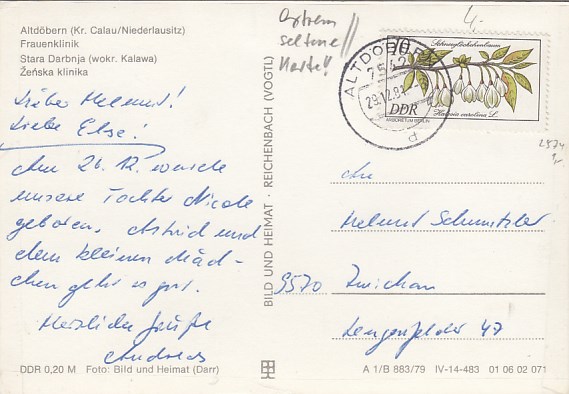 Altdöbern (Kr. Calau/Niederlausitz)
Frauenklinik
Stara Darbnja (wokr. Kalawa)
Žeńska klinika
Liebe Else!
Am 26. 12. wurde
unsere Tochter Nicole
geboren. Astrid und
dem kleinen Mäd-
chen geht es gut.
Herzliche Grüße
Andreas
DDR 0,20 M Foto: Bild und Heimat (Darr)
BILD UND HEIMAT · REICHENBACH (VOGTL)
Extrem
seltene
Marke!!
4,-
ALTDÖBERN
7542
29.12.81
d
10
Schneeglöckchenbaum
DDR
Halesia carolina L.
ARBORETUM BERLIN
2574
An
Helmut
9570 Zwickau
Lengenfelder 47
A 1/B 883/79 IV-14-483 01 06 02 071